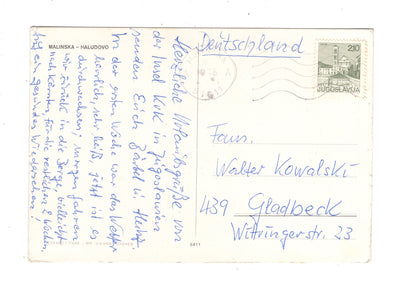 MALINSKA - HALUDOVO
Herzliche Urlaubsgrüße von
der Insel Krk in Jugoslawien
senden Euch
In der ersten Woche war das Wetter
herrlich, sehr heiß, jetzt ist es
durchwachsen, morgen fahren
wir zurück in die Berge, vielleicht
nach Kärnten, für die restlichen 2 Wochen.
Auf ein gesundes Wiedersehen!
Deutschland
2,10
JUGOSLAVIJA
Fam.
Walter Kowalski
439 Gladbeck
Wittringerstr. 23